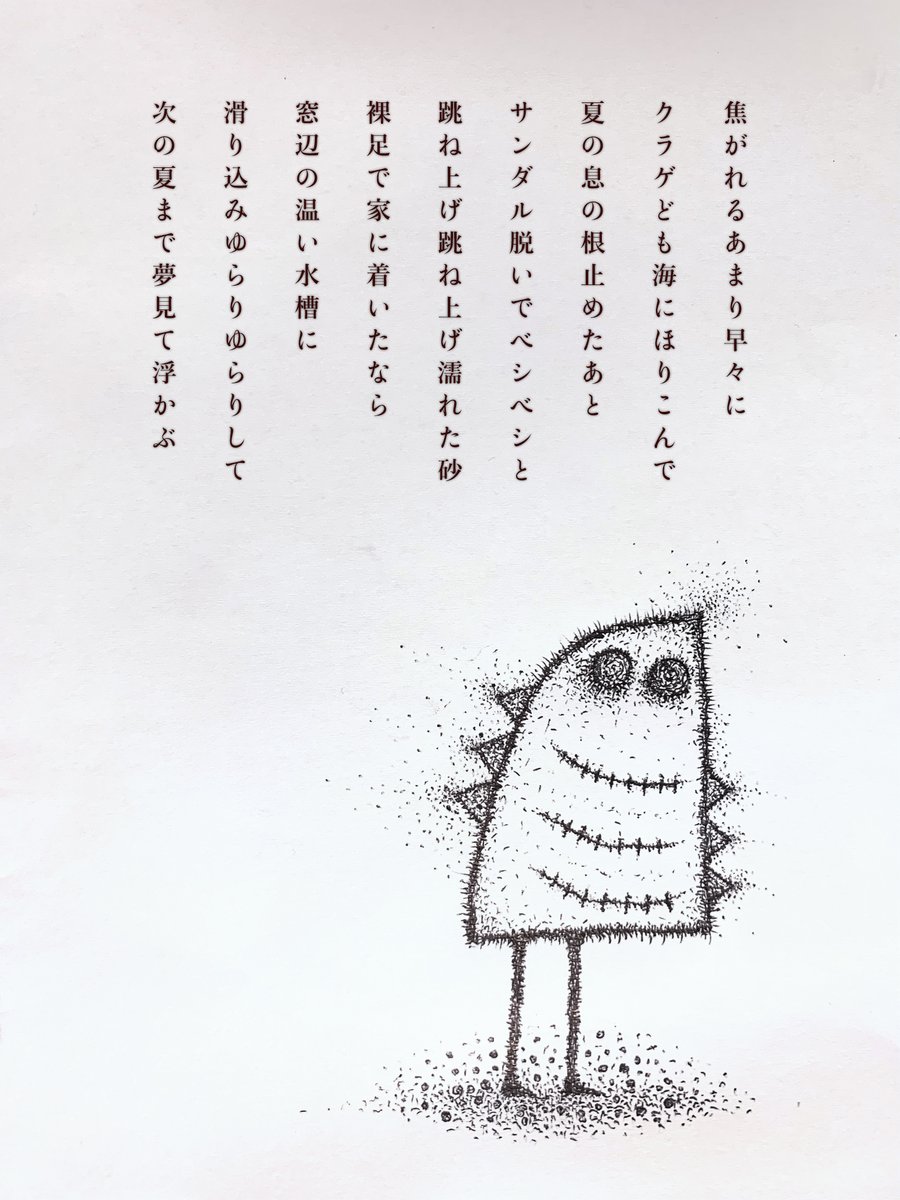 焦がれるあまり早々に
クラゲども海にほりこんで
夏の息の根止めたあと
サンダル脱いでベシベシと
跳ね上げ跳ね上げ濡れた砂
裸足で家に着いたなら
窓辺の温い水槽に
滑り込みゆらりゆらりして
次の夏まで夢見て浮かぶ